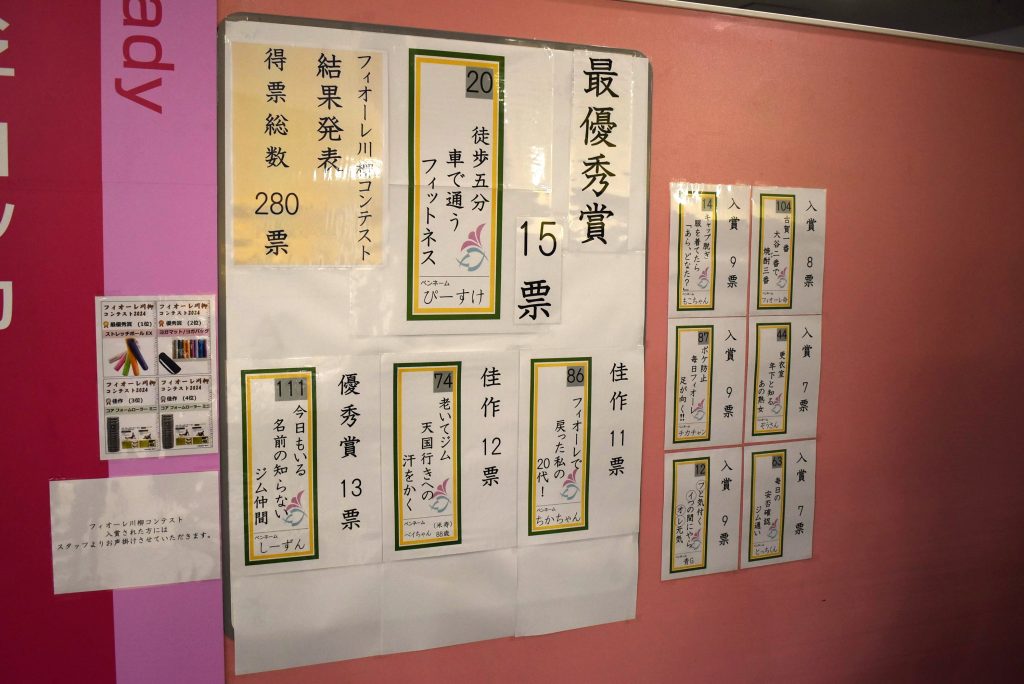 ady
フィオーレ川柳コンテスト
結果発表
得票総数
280票
最優秀賞
15票
20
徒歩五分
車で通う
フィットネス
ペンネーム
ぴーすけ
優秀賞 13票
111
今日もいる
名前の知らない
ジム仲間
ペンネーム
しーずん
佳作 12票
74
老いてジム
天国行きへの
汗をかく
ペンネーム
(米寿)
ベイちゃん 88歳
佳作 11票
86
フィオーレで
戻った私の
20代!
ペンネーム
ちかちゃん
入賞 9票
14
キャップ脱ぎ
服を着てたら
「あら、どなた?」
ちこちゃん
入賞 8票
104
古賀一番
大谷二番で
焼酎三番
フィオーレ命
入賞 9票
87
ボケ防止
毎日フィオーレ
足が向く!!
チカチャン
入賞 7票
44
更衣室
年下と知る
あの熟女
ぞうさん
入賞 9票
12
フと気付く
イつの間にやら
オレ元気
青G
入賞 7票
63
毎日の
安否確認
ジム通い
とっちくん
フィオーレ川柳
コンテスト2024
最優秀賞 (1位)
ストレッチポール EX
フィオーレ川柳
コンテスト2024
優秀賞 (2位)
ヨガマット/ヨガバック
フィオーレ川柳
コンテスト2024
佳作 (3位)
コア フォームローラー ミニ
フィオーレ川柳
コンテスト2024
佳作 (4位)
コア フォームローラー ミニ
フィオーレ川柳コンテスト
入賞された方には
スタッフよりお声掛けさせていただきます。